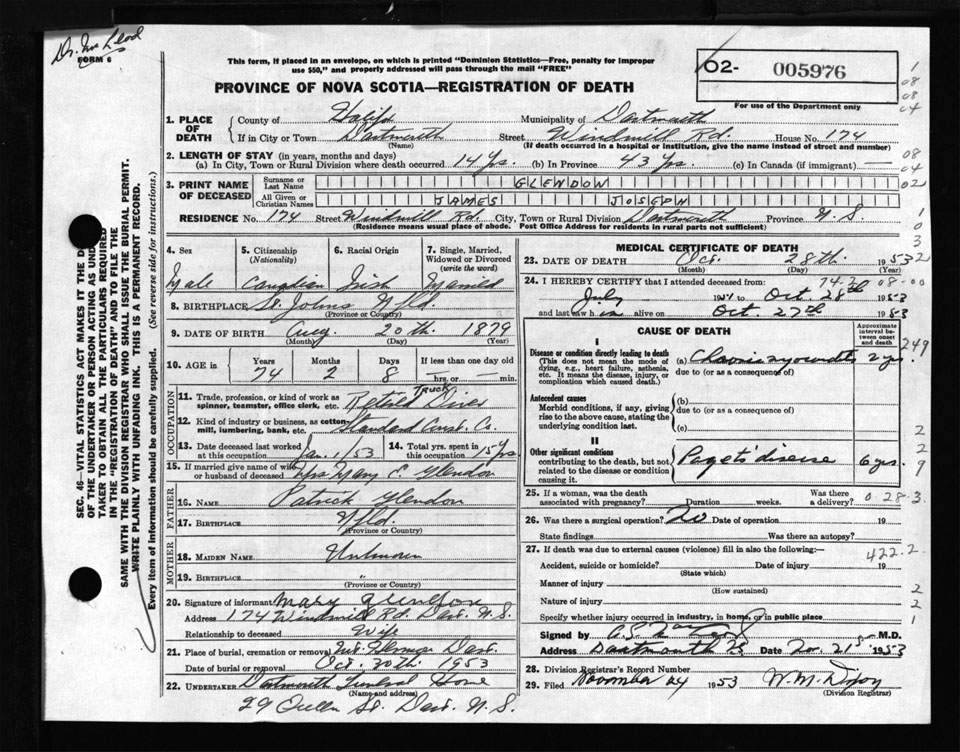 Dr. McLeod
FORM 6
This form, if placed in an envelope, on which is printed "Dominion Statistics—Free, penalty for improper
use $50," and properly addressed will pass through the mail "FREE"
PROVINCE OF NOVA SCOTIA—REGISTRATION OF DEATH
02- 005976
For use of the Department only
1. PLACE OF DEATH County of Halifax Municipality of Dartmouth
If in City or Town Dartmouth Street Windmill Rd. House No. 174
(Name) (If death occurred in a hospital or institution, give the name instead of street and number)
2. LENGTH OF STAY (in years, months and days)
(a) In City, Town or Rural Division where death occurred 14 Yrs. (b) In Province 43 Yrs. (c) In Canada (if immigrant)
3. PRINT NAME OF DECEASED Surname or Last Name GLENDON
All Given or Christian Names JAMES JOSEPH
RESIDENCE No. 174 Street Windmill Rd. City, Town or Rural Division Dartmouth Province N.S.
(Residence means usual place of abode. Post Office Address for residents in rural parts not sufficient)
4. Sex Male
5. Citizenship (Nationality) Canadian
6. Racial Origin Irish
7. Single, Married, Widowed or Divorced (write the word) Married
8. BIRTHPLACE St. Johns Nfld.
(Province or Country)
9. DATE OF BIRTH Aug. 20th. 1879
(Month) (Day) (Year)
10. AGE in Years 74 Months 2 Days 8 If less than one day old hrs. or min.
OCCUPATION
11. Trade, profession, or kind of work as spinner, teamster, office clerk, etc. Retired Truck Driver
12. Kind of industry or business, as cotton-mill, lumbering, bank, etc. Standard Const. Co.
13. Date deceased last worked at this occupation Jan. 1/53
14. Total yrs. spent in this occupation 15 Yrs
15. If married give name of wife or husband of deceased Mrs Mary E Glendon
FATHER
16. NAME Patrick Glendon
17. BIRTHPLACE Nfld.
(Province or Country)
MOTHER
18. MAIDEN NAME Unknown
19. BIRTHPLACE "
(Province or Country)
20. Signature of informant Mary Glendon
Address 174 Windmill Rd. Dart. N.S.
Relationship to deceased Wife
21. Place of burial, cremation or removal Mt. Hermon Dart.
Date of burial or removal Oct. 30th. 1953
22. UNDERTAKER Dartmouth Funeral Home
(Name and address)
29 Queen St. Dart. N.S.
MEDICAL CERTIFICATE OF DEATH
23. DATE OF DEATH Oct. 28th. 1953
(Month) (Day) (Year)
24. I HEREBY CERTIFY that I attended deceased from:
July to Oct. 28th 1953
and last saw h im alive on Oct. 27th 1953
CAUSE OF DEATH
Approximate interval between onset and death
I
Disease or condition directly leading to death
(This does not mean the mode of dying, e.g., heart failure, asthenia, etc. It means the disease, injury, or complication which caused death.)
(a) Chronic myocarditis 2 yrs.
due to (or as a consequence of)
Antecedent causes
Morbid conditions, if any, giving rise to the above cause, stating the underlying condition last.
(b)
due to (or as a consequence of)
(c)
II
Other significant conditions
contributing to the death, but not related to the disease or condition causing it.
Paget's disease 6 yrs.
25. If a woman, was the death associated with pregnancy? Duration weeks. Was there a delivery?
26. Was there a surgical operation? No Date of operation 19
State findings Was there an autopsy?
27. If death was due to external causes (violence) fill in also the following:—
Accident, suicide or homicide? Date of injury 19
(State which)
Manner of injury
(How sustained)
Nature of injury
Specify whether injury occurred in industry, in home, or in public place
Signed by M.D.
Address Dartmouth Date Nov. 21st 1953
28. Division Registrar's Record Number
29. Filed November 24 1953 W.M. Dixon
(Division Registrar)
SEC. 46—VITAL STATISTICS ACT MAKES IT THE
OF THE UNDERTAKER OR PERSON ACTING AS UNDER
TAKER TO OBTAIN ALL THE PARTICULARS REQUIRED
IN THE "REGISTRATION OF DEATH" AND TO FILE THE
SAME WITH THE DIVISION REGISTRAR WHO SHALL ISSUE THE BURIAL PERMIT.
WRITE PLAINLY WITH UNFADING INK. THIS IS A PERMANENT RECORD.
Every item of information should be carefully supplied. (See reverse side for instructions.)
1
08
08
04
08
04
02
1
0
3
2
08-00
249
2
2
9
0 28-3.
422.2.
2
2
1